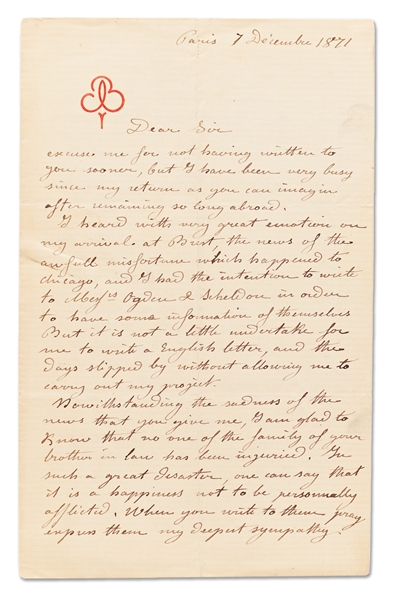 Paris 7 Décembre 1871
Dear Sir
excuse me for not having written to
you sooner, but I have been very busy
since my return as you can imagin
after remaining so long abroad.
I heard with very great emotion on
my arrival at Brest, the news of the
awfull misfortune which happened to
chicago, and I had the intention to write
to Messrs Ogden & Scheldon in order
to have some information of themselves
But it is not a little undertake for
me to write a English letter, and the
days slipped by without allowing me to
carry out my project.
Nowithstanding the sadness of the
news that you give me, I am glad to
Know that no one of the family of your
brother in law has been injuried. In
such a great disaster, one can say that
it is a happiness not to be personnally
afflicted. When you write to them pray
express them my deepest sympathy.